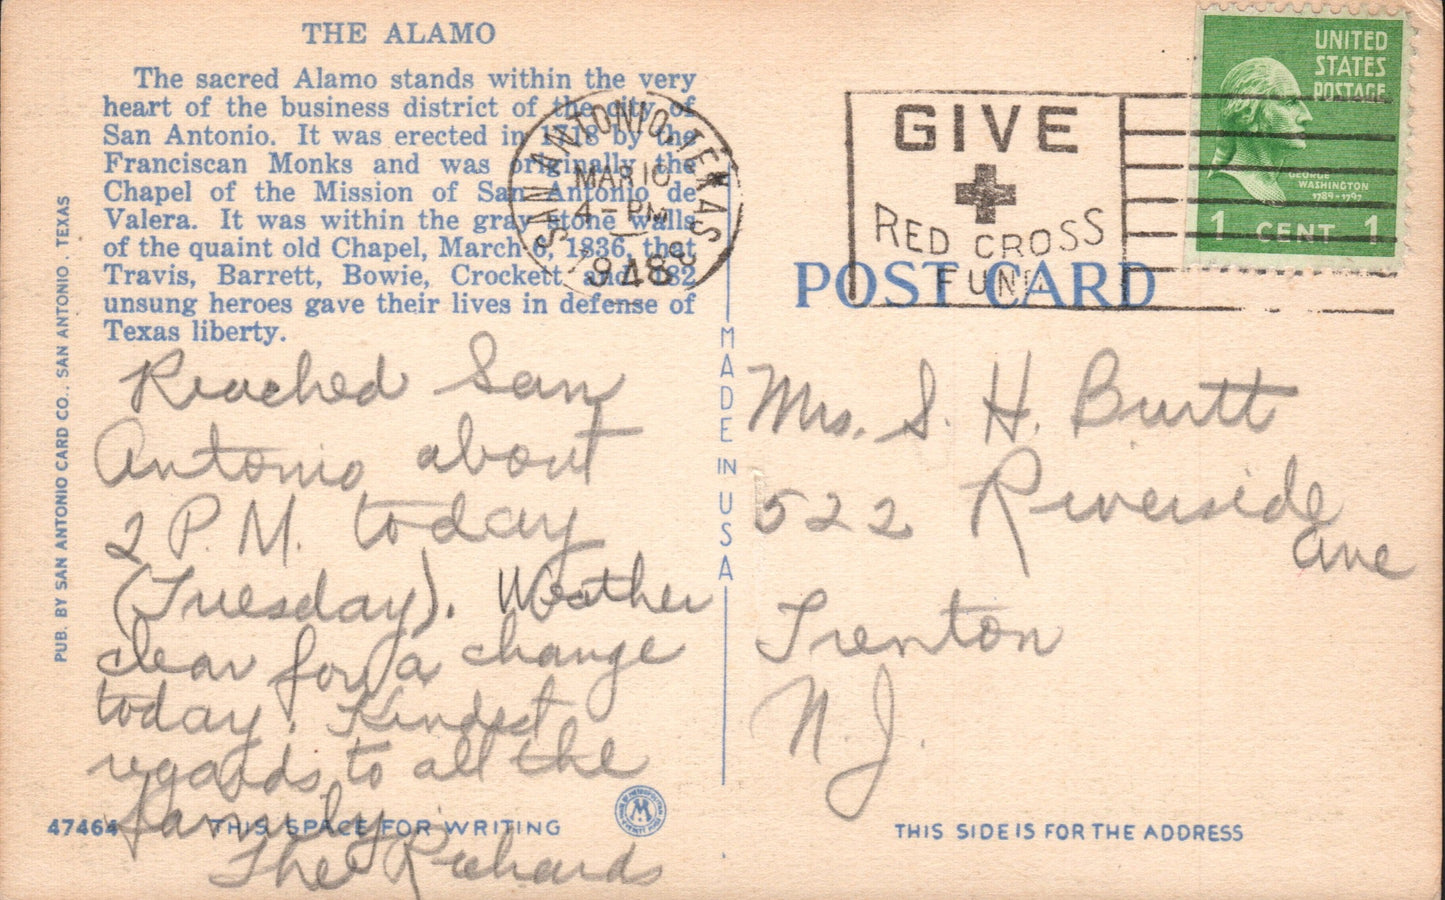 THE ALAMO
The sacred Alamo stands within the very
heart of the business district of the city of
San Antonio. It was erected in 1718 by the
Franciscan Monks and was originally the
Chapel of the Mission of San Antonio de
Valera. It was within the gray stone walls
of the quaint old Chapel, March 6, 1836, that
Travis, Barrett, Bowie, Crockett and 182
unsung heroes gave their lives in defense of
Texas liberty.
SAN ANTONIO, TEXAS
MAR 10
4-PM
1948
GIVE
RED CROSS
FUND
UNITED
STATES
POSTAGE
GEORGE
WASHINGTON
1789-1797
1 CENT 1
POST CARD
Reached San
Antonio about
2 P.M. today
(Tuesday). Weather
clear for a change
today. Kindest
regards to all the
family.
The Richards
Mrs. S. H. Burtt
522 Riverside
Ave
Trenton
N.J.
PUB. BY SAN ANTONIO CARD CO., SAN ANTONIO, TEXAS
MADE IN USA
47464
THIS SPACE FOR WRITING
M
THIS SIDE IS FOR THE ADDRESS